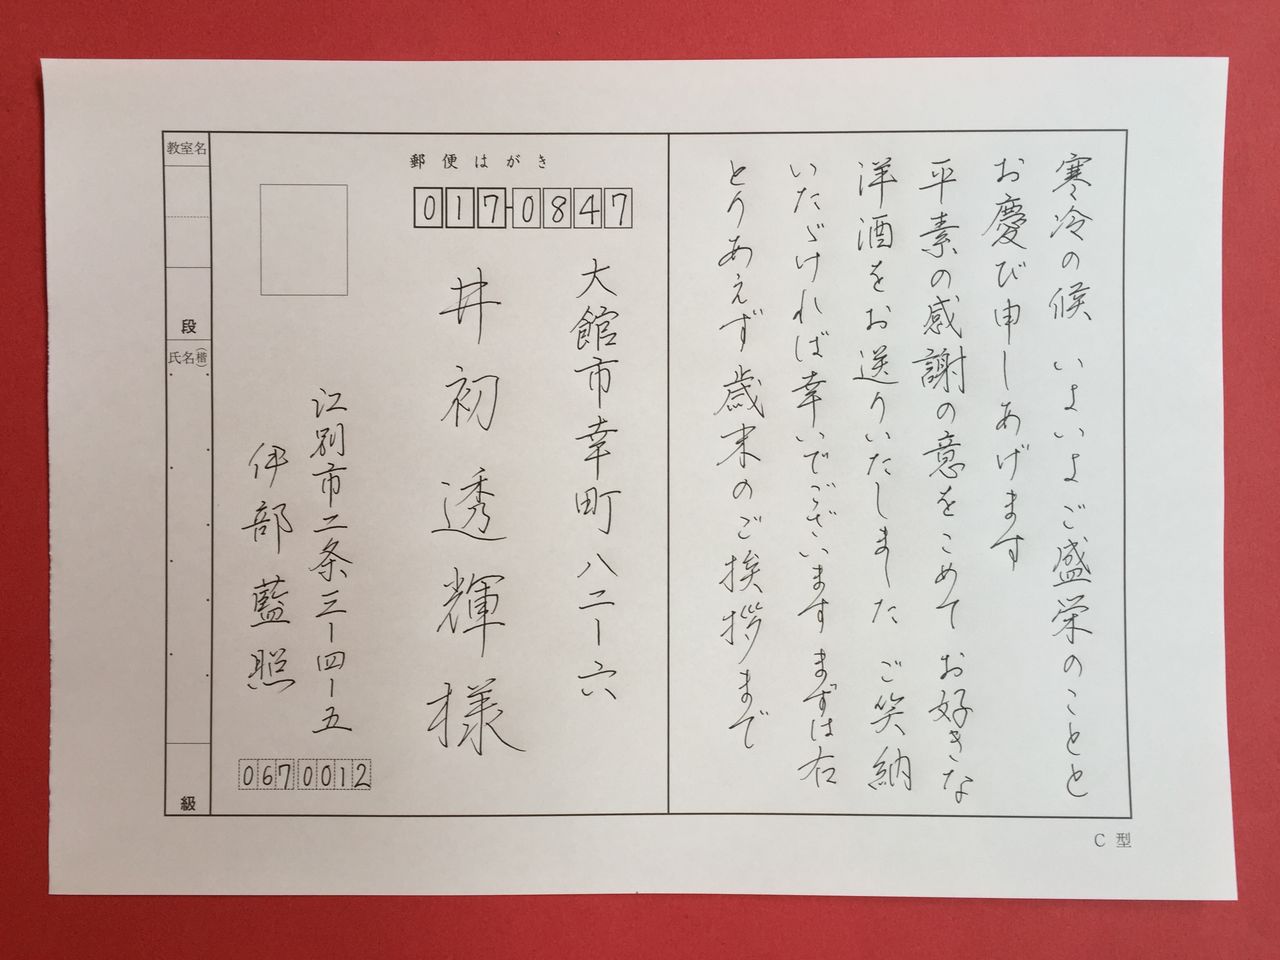 寒冷の候 いよいよご盛栄のことと
お慶び申しあげます
平素の感謝の意をこめて お好きな
洋酒をお送りいたしました ご笑納
いたゞければ幸いでございます まずは右
とりあえず歳末のご挨拶まで
郵便はがき
017-0847
大館市幸町八二ー六
井初透輝様
江別市二条三ー四ー五
伊部藍照
0670012
教室名
段
氏名(楷)
級
C型